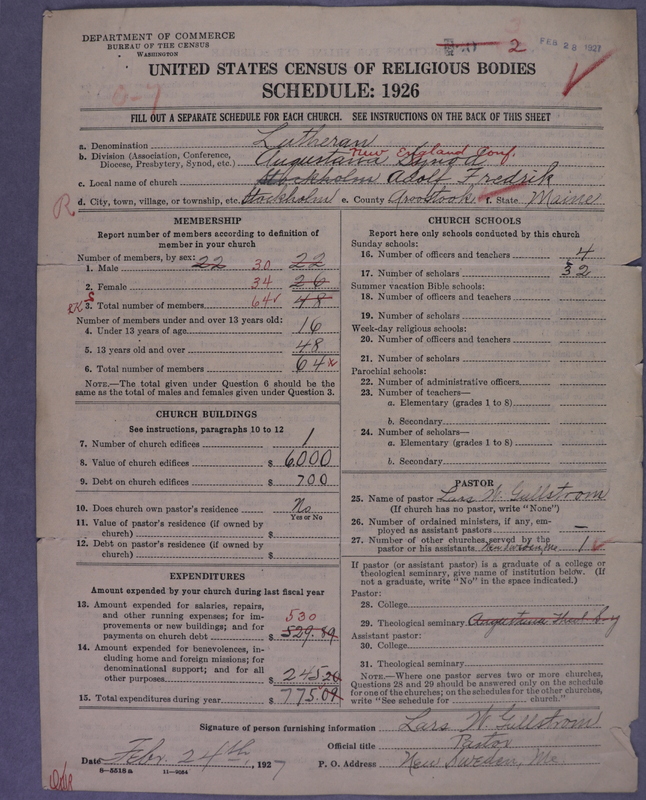 DEPARTMENT OF COMMERCE
BUREAU OF THE CENSUS
WASHINGTON
3
2
FEB 28 1927
UNITED STATES CENSUS OF RELIGIOUS BODIES
SCHEDULE: 1926
FILL OUT A SEPARATE SCHEDULE FOR EACH CHURCH. SEE INSTRUCTIONS ON THE BACK OF THIS SHEET
a. Denomination Lutheran
b. Division (Association, Conference, Diocese, Presbytery, Synod, etc.) Augustana Synod New England Conf.
c. Local name of church Stockholm Adolf Fredrik
d. City, town, village, or township, etc. Stockholm e. County Aroostook f. State Maine
R
MEMBERSHIP
Report number of members according to definition of
member in your church
Number of members, by sex: 22
1. Male 30 22
2. Female 34 26
3. Total number of members 64 48
Number of members under and over 13 years old:
4. Under 13 years of age 16
5. 13 years old and over 48
6. Total number of members 64
NOTE.—The total given under Question 6 should be the
same as the total of males and females given under Question 3.
CHURCH BUILDINGS
See instructions, paragraphs 10 to 12
7. Number of church edifices 1
8. Value of church edifices $ 6000
9. Debt on church edifices $ 700
10. Does church own pastor's residence? No
Yes or No
11. Value of pastor's residence (if owned by
church) $
12. Debt on pastor's residence (if owned by
church) $
EXPENDITURES
Amount expended by your church during last fiscal year
13. Amount expended for salaries, repairs,
and other running expenses; for im-
provements or new buildings; and for
payments on church debt $ 529.89
530
14. Amount expended for benevolences, in-
cluding home and foreign missions; for
denominational support; and for all
other purposes $ 245.20
15. Total expenditures during year $ 775.09
CHURCH SCHOOLS
Report here only schools conducted by this church
Sunday schools:
16. Number of officers and teachers 4
17. Number of scholars 32
Summer vacation Bible schools:
18. Number of officers and teachers
19. Number of scholars
Week-day religious schools:
20. Number of officers and teachers
21. Number of scholars
Parochial schools:
22. Number of administrative officers
23. Number of teachers—
a. Elementary (grades 1 to 8)
b. Secondary
24. Number of scholars—
a. Elementary (grades 1 to 8)
b. Secondary
PASTOR
25. Name of pastor Lars W. Gullstrom
(If church has no pastor, write "None")
26. Number of ordained ministers, if any, em-
ployed as assistant pastors –
27. Number of other churches served by the
pastor or his assistants New Sweden, Me 1
If pastor (or assistant pastor) is a graduate of a college or
theological seminary, give name of institution below. (If
not a graduate, write "No" in the space indicated.)
Pastor:
28. College
29. Theological seminary Augustana Theol Sem
Assistant pastor:
30. College
31. Theological seminary
NOTE.—Where one pastor serves two or more churches,
Questions 28 and 29 should be answered only on the schedule
for one of the churches; on the schedules for the other churches,
write "See schedule for church."
Signature of person furnishing information Lars W. Gullstrom
Official title Pastor
Date Febr. 24th, 1927 P. O. Address New Sweden, Me.
8—5518a 11—9064